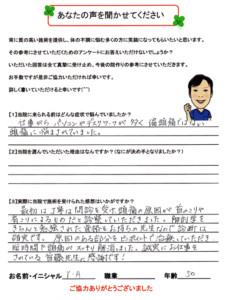 あなたの声を聞かせてください
常に質の高い施術を提供し、体の不調に悩む多くの方に笑顔になってもらいたいと思います。
その参考にさせていただくためのアンケートにお答えいただけないでしょうか？
いただいた回答は全て真摯に受け止め、今後の院作りの参考にさせていただきます。
お手数ですが是非ご協力いただければ幸いです。
詳しく書いていただけると幸いです(^^)
【1】当院に来られる前はどんな症状で悩んでいましたか？
仕事がら パソコンやデスクワークが多く 偏頭痛ではない
頭痛に悩まされていました。
【2】当院を選んでいただいた理由はなんですか？(なにが決め手となりましたか？)
【3】実際に当院で施術を受けられた感想はいかがですか？
最初に丁寧な問診を受け頭痛の原因が首のこりや
肩こりによるものだと診断していただきました。解剖学を
きちんと勉強された資格をお持ちの先生なので診断は
確実です。原因のある部分をピンポイントで治療していただき
短時間で頭痛がスッキリ解消しました。誠実にお仕事を
されている 先生に感謝です！
お名前・イニシャル Y・A 職業 年齢 50
ご協力ありがとうございました